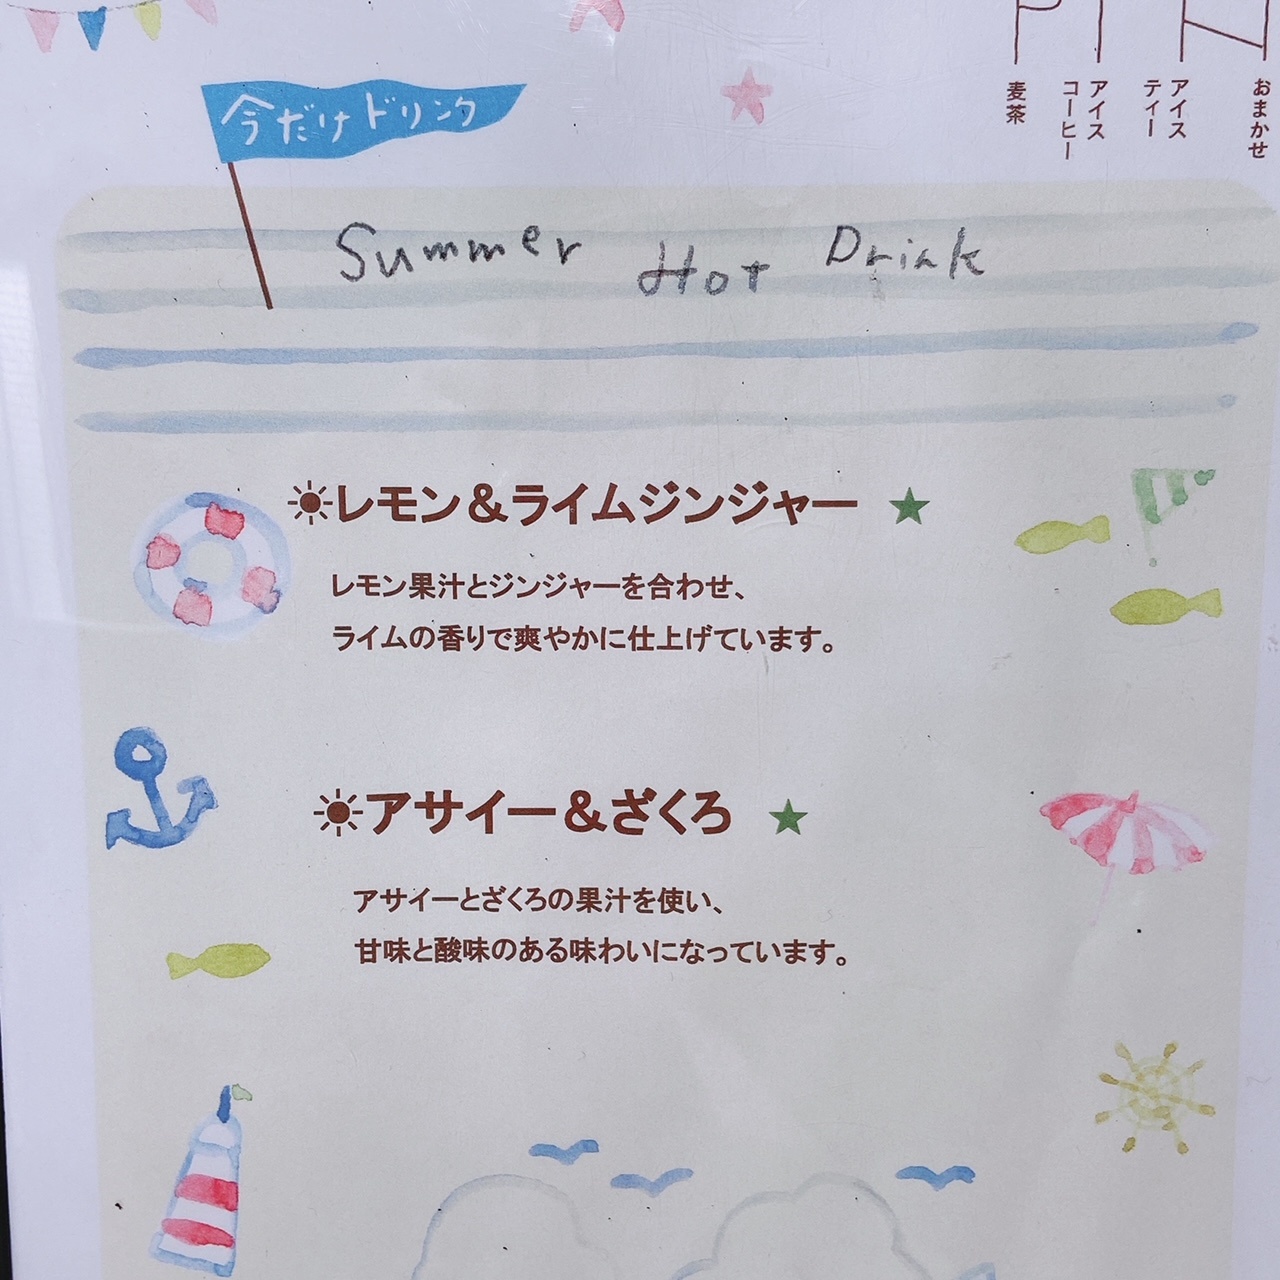 今だけドリンク
おまかせ
アイス
ティー
アイス
コーヒー
麦茶
Summer Hot Drink
レモン&ライムジンジャー ★
レモン果汁とジンジャーを合わせ、
ライムの香りで爽やかに仕上げています。
アサイー&ざくろ ★
アサイーとざくろの果汁を使い、
甘味と酸味のある味わいになっています。